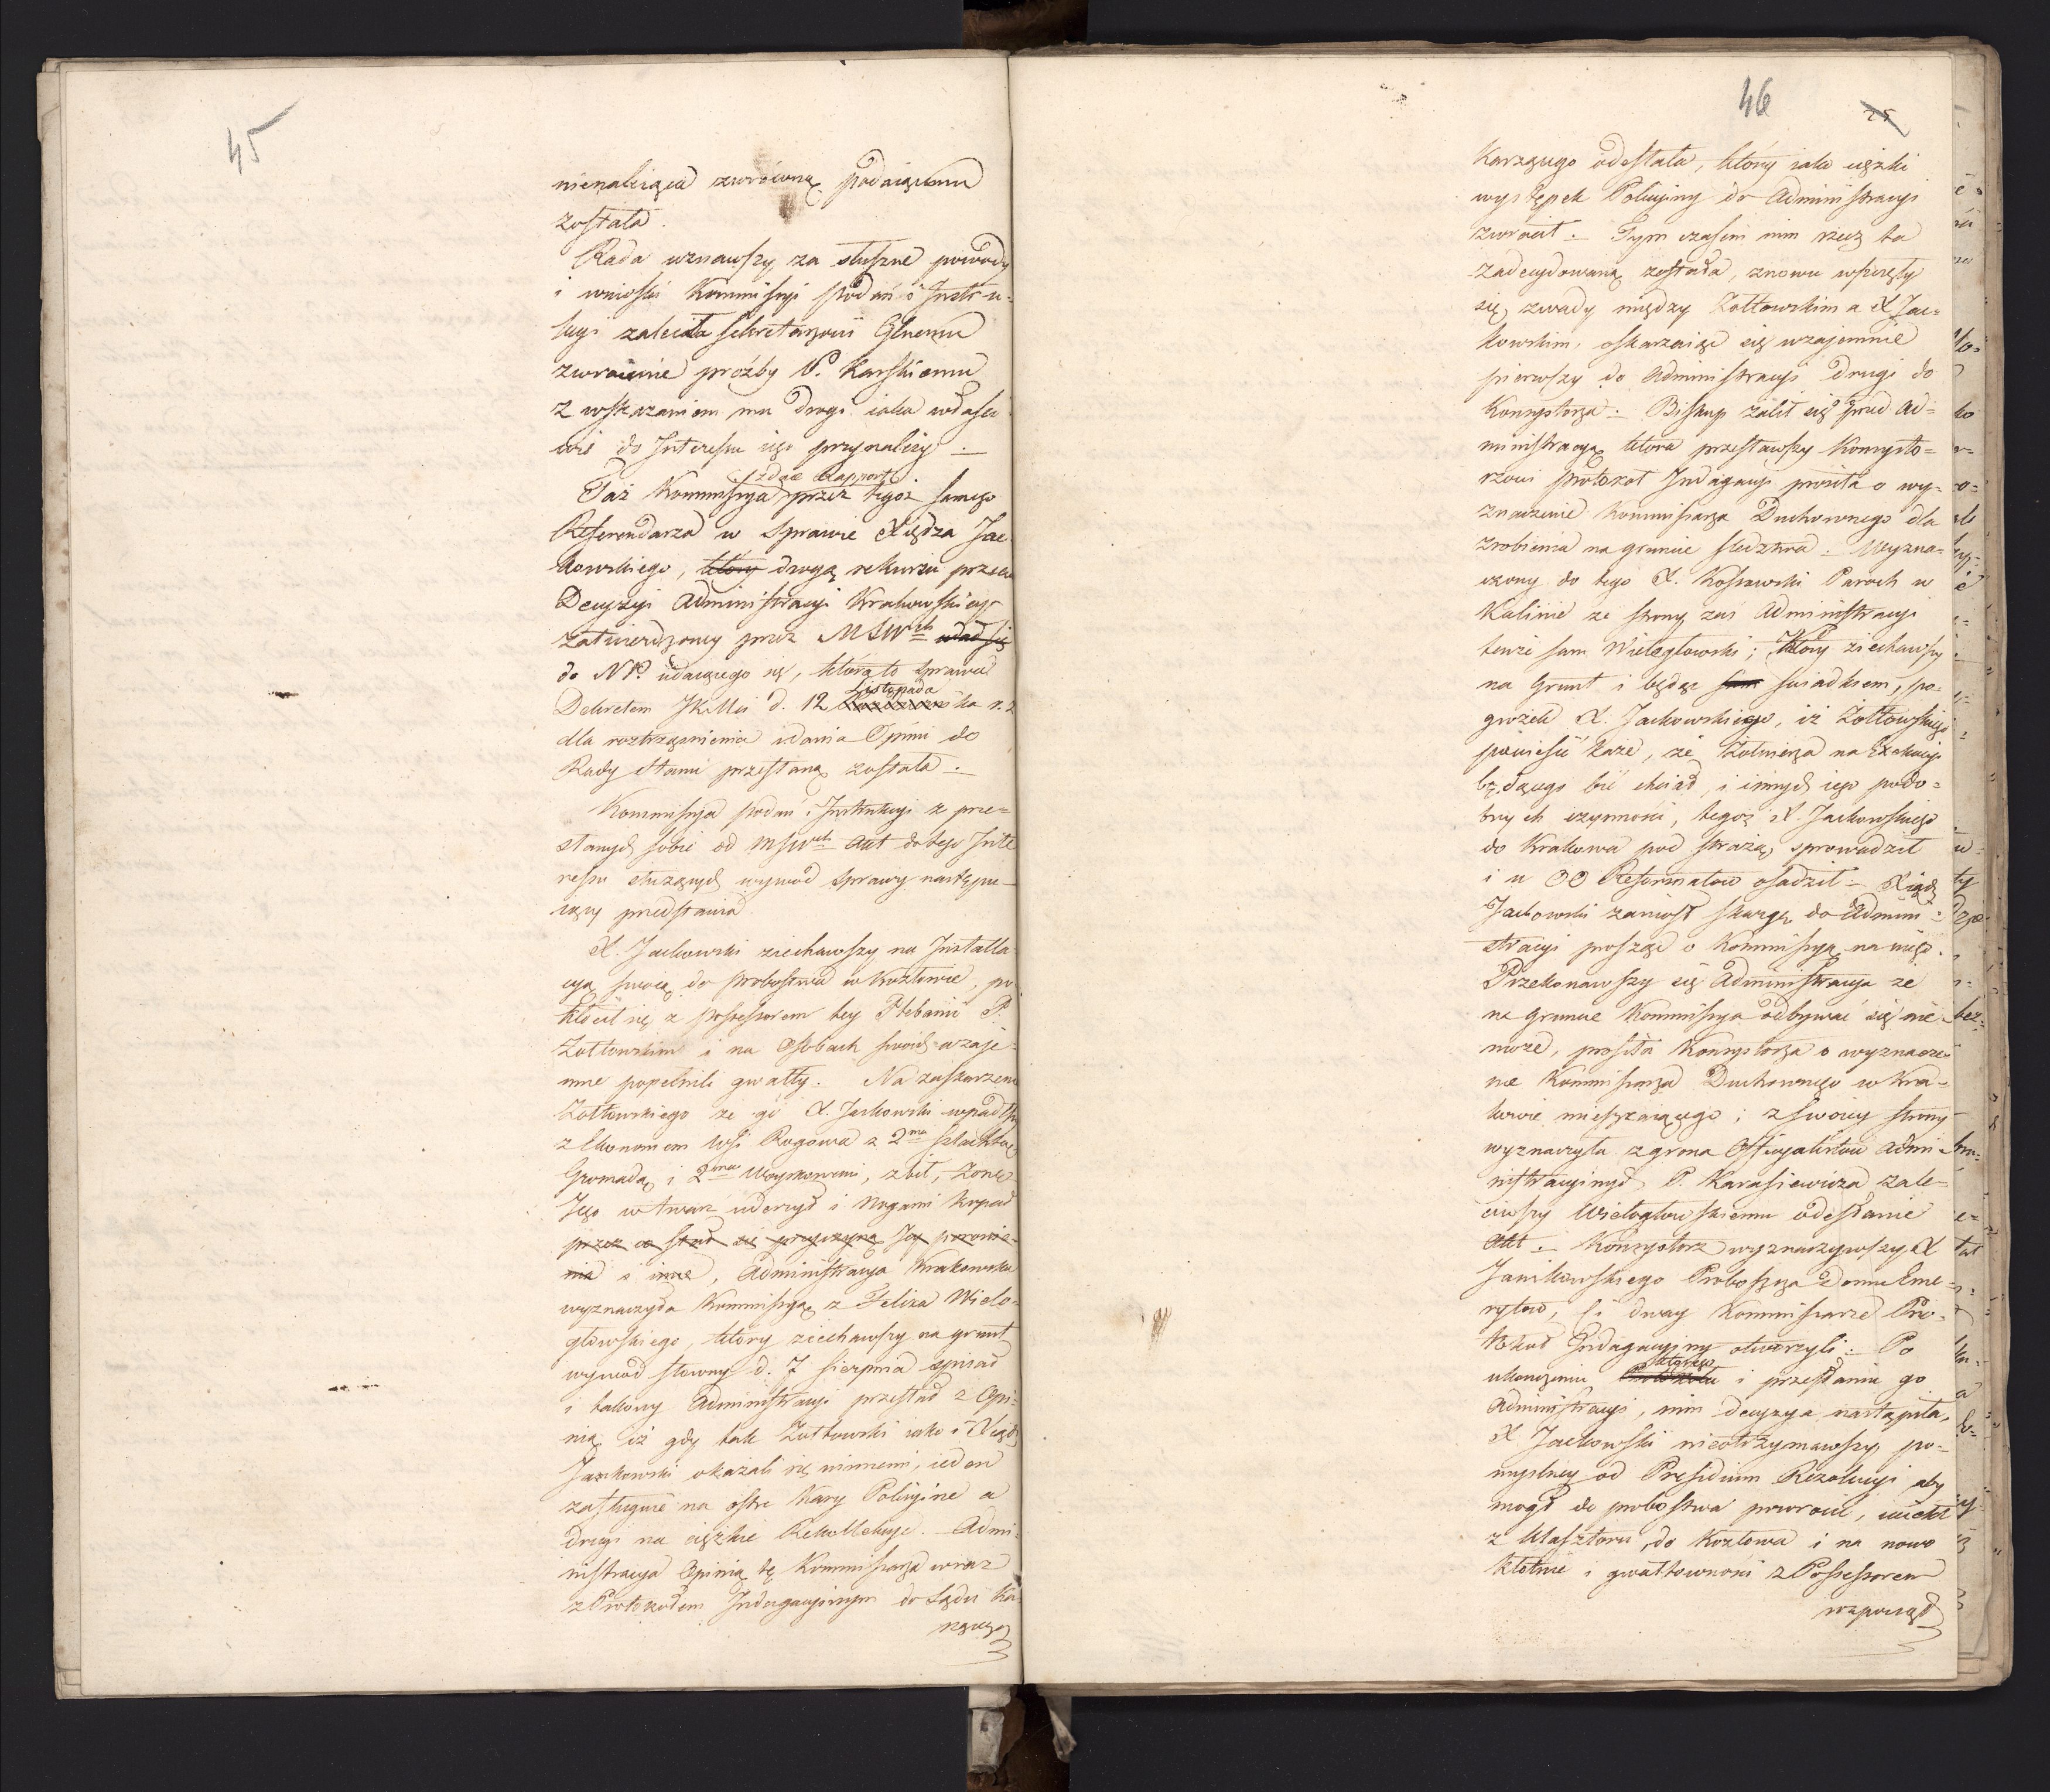 45
nienależąca zwróconą podaiącemu
została.
Rada uznawszy za słuszne powody
i wnioski Kommissyi podań i Instru-
kcyi zaleciła Sekretarzowi Glnemu
zwrócenie prożby P. Karskiemu
z wskazaniem mu drogi iaka właści
wie do Interessu iego przynależy.
zdaie Rapport
Taż Kommissyia przez tegoż samego
Referendarza w sprawie Xiędza Jac
kowskiego, który drogą rekursu przeciw
Decyzyi Administracyi Krakowskiey
zatwierdzoney przez MSWch udał się
do NP. udaiącego się, która to sprawa
Listopada
Dekretem JKMci d. 12 r.
dla roztrząśnienia i dania Opinii do
Rady Stanu przesłaną została.
Kommissyia podań i Instrukcyi z prze-
słanych sobie od MSWch Akt do tego Inte
ressu służących wywod sprawy następu-
iący przedstawia
X. Jackowski ziechawszy na Installa
cyą swoią do probostwa w Kozłowie, po
kłócił się z possessorem tey Plebanii P.
Żołtowskim i na Osobach swoich wzaje-
mne popełnili gwałty. Na zaskarzenie
Zołtowskiego że go X. Jackowski wpadłszy
z Ekonomem Wsi Rogowa z 2ma szlachtą
Gromadą i 2ma Woyskowemi, zbił, Zonę
Jego w twarz uderzył i Nogami kopał
przez co stał się przyczyną Jey poronie-
nia i inne, Administracya Krakowska
wyznaczyła Kommissyią z Felixa Wielo-
głowskiego, który ziechawszy na grunt
wywod słowny d. 7 Sierpnia spisał
i takowy Administracyi przesłał z Opi-
nią iż gdy tak Zołtowski iako i Xiądz
Jackowski okazali się winnemi, ieden
zasługuie na ostre kary Policyine a
drugi na ciężkie Rekollekcye. Admi-
nistracya Opinią tę Kommissarza wraz
z Protokołem Indagacyinym do Sądu Ka-
rzącego
46
25
Karzącego odesłała, który iako ciężki
występek Policyiny do Administracyi
zwrócił. Tym czasem nim rzecz ta
zadecydowaną została, znowu wszczęły
się zwady między Zołtowskim a X Jac-
kowskim, oskarzaiąc się wzajemnie
pierwszy do Administracyi drugi do
Konsystorza. Biskup żalił się przed Ad-
ministracyą która przesławszy Konsysto-
rzowi protokoł Indagacyi prosiła o wy-
znaczenie Kommissarza Duchownego dla
zrobienia na gruncie sledztwa. Wyzna-
czony do tego X. Kossawski Paroch w
Kalinie ze strony zaś Administracyi
tenże sam Wielogłowski; Który ziechawszy
na Grunt i będąc sam swiadkiem, po-
grożek X. Jackowskiego, iż Żołtowskiego
powiesić każe, że Żołnierza na Exekucyi
będącego bić chciał, i innych iego podo-
bnych czynności, tegoż X. Jackowskiego
do Krakowa pod strażą sprowadził
i u OO Reformatow osadził. Xiądz
Jackowski zaniosł skargę do Admini-
stracyi prosząc o Kommissyią na mieysc.
Przekonawszy się Administracya że
na gruncie Kommissyia odbywać się nie
może, prosiła Konsystorza o wyznacze
nie Kommissarza Duchownego w Kra-
kowie mieszkaiącego; z swoiey strony
wyznaczyła z grona Officyalistow Admi-
nistracyinych P. Karasiewicza zale-
ciwszy Wielogłowskiemu odesłanie
Akt. Konsystorz wyznaczywszy X
Janikowskiego Proboszcza Domu Eme-
rytow, Ci dway Kommissarze Pro-
tokuł Indagacyiny otworzyli. Po
którego
ukończeniu Protokołu i przesłaniu go
Administracyi, nim decyzya nastąpiła,
X. Jackowski nieotrzymawszy po-
myslney od Prezidium Rezolucyi aby
mogł do probostwa powrocić, uciekł
z Klasztoru do Kozłowa i na nowo
kłótnie i gwałtowności z Possessorem
rozpoczął